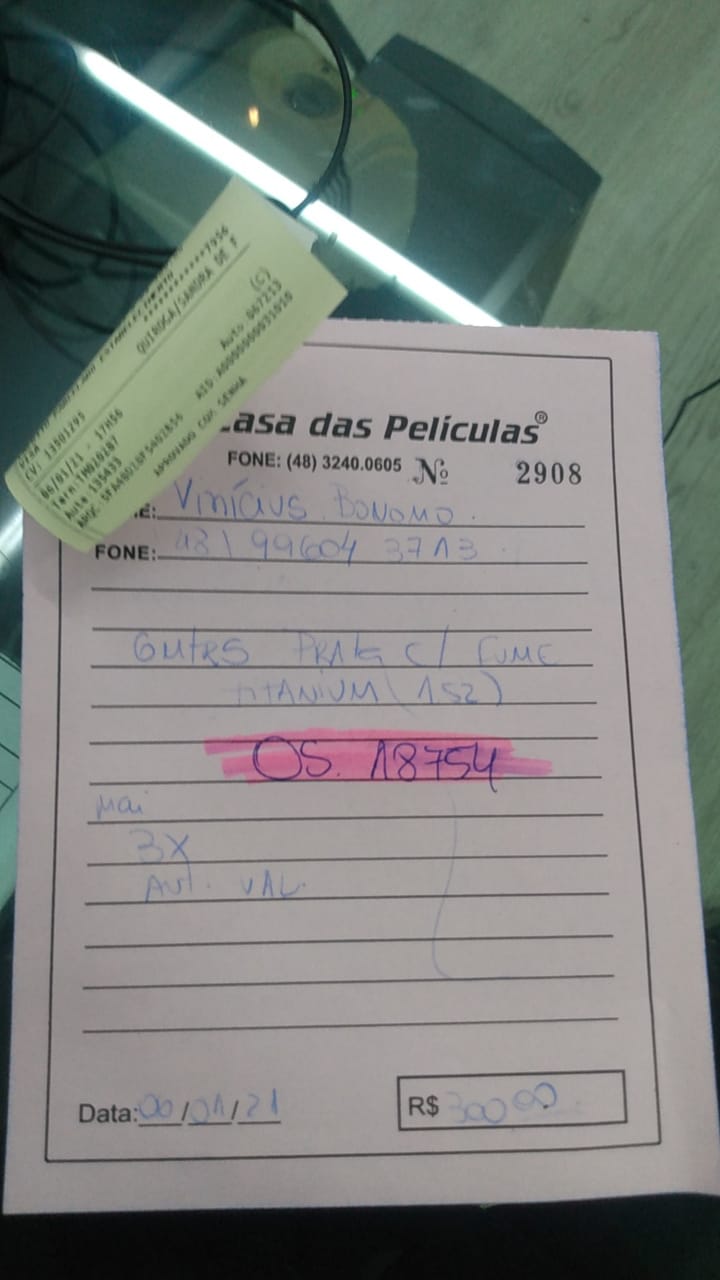 QUIROGA/SANDRA DE F
(C)
CV: 13501295 Auto:067213
06/01/21 - 17H56 AID:A0000000031010
Term:TM020287
Auto 135433
APROVADO COM SENHA
asa das Películas®
FONE: (48) 3240.0605 Nº 2908
E: Vinícius Bonomo.
FONE: 48) 99604 3713
6MTRS PRATA C/ FUME
TITANIUM (1.52)
OS. 18754
3X
Aut. VAL.
Data: 06/01/21 R$ 300 00